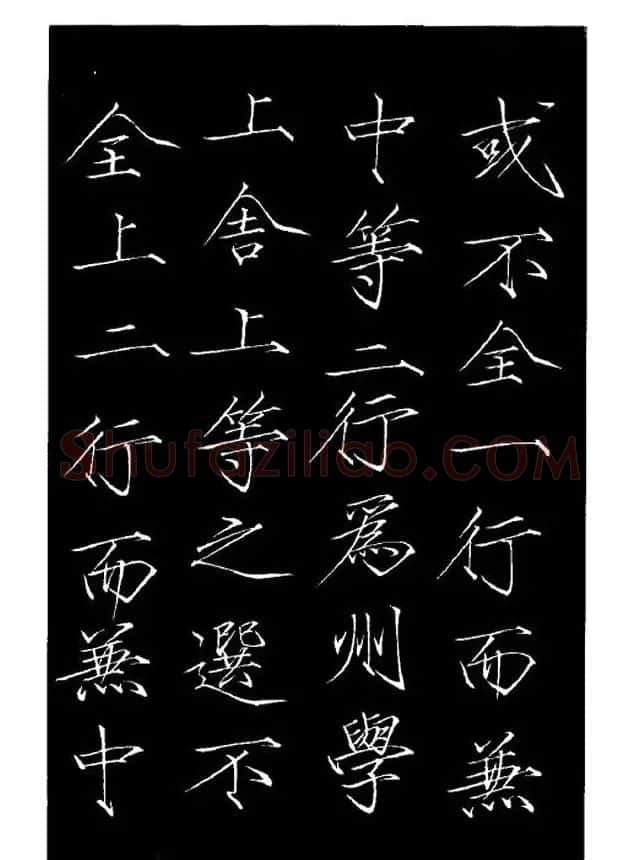 或不全一行而兼
中等二行爲州學
上舍上等之選不
全上二行而兼中
Shufaziliao.COM